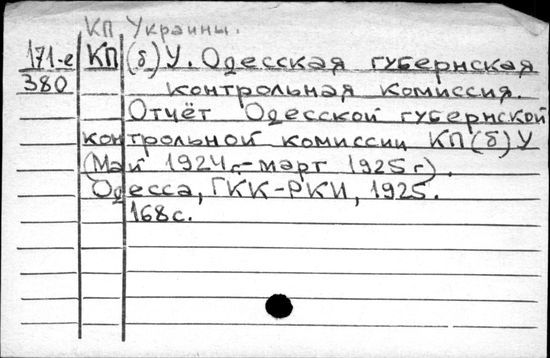 КП Украины.
171-е КП(б)У. Одесская губернская
380 контрольная комиссия.
Отчёт Одесской губернской
контрольной комиссии КП(б)У
(Май 1924г.-март 1925г).
Одесса, ГКК-РКИ, 1925.
168с.